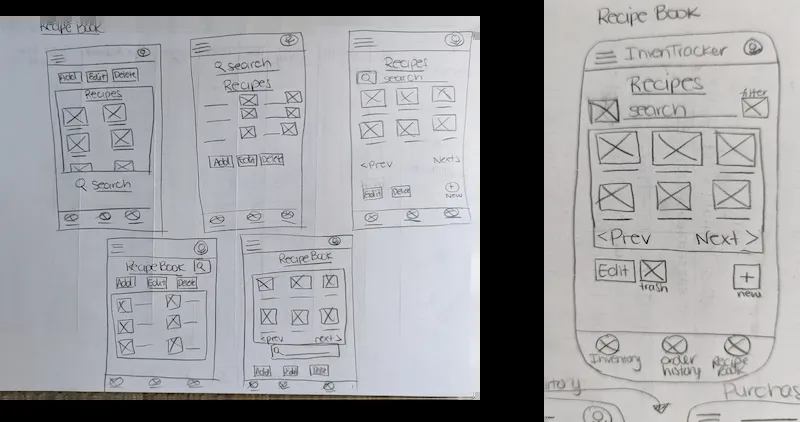 Recipe Book
Add Edit Delete
Recipes
Q search
Q search
Recipes
Add Edit Delete
Recipes
Q search
<Prev Next>
Edit Delete
+
New
Recipe Book Q
Add Edit Delete
Recipe Book
<prev next>
Q
Add Add Delete
Recipe Book
InvenTracker
Recipes
filter
search
<Prev Next >
Edit
trash
+
new
Inventory
order history
Recipe Book
Purchas